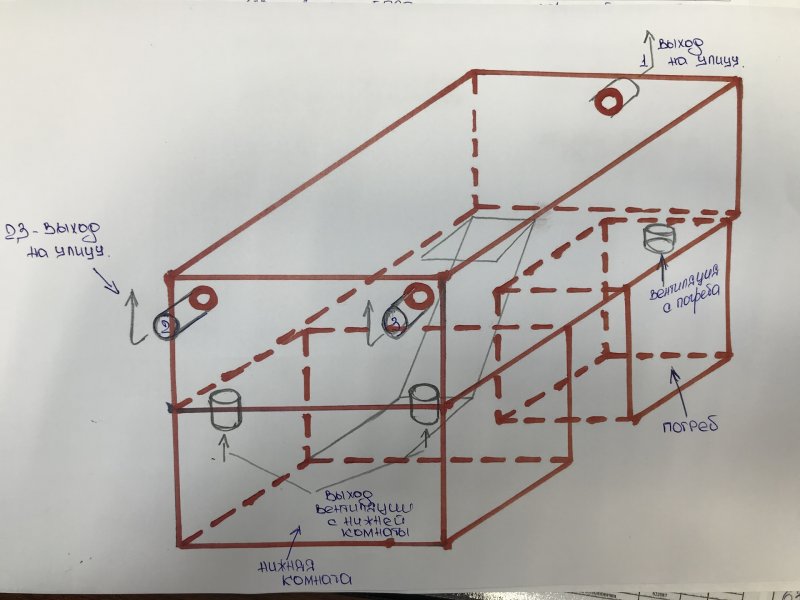 выход
1 на улицу.
2,3 - выход
на улицу.
2
3
вентиляция
с погреба
погреб
выход
вентиляции
с нижней
комноты
нижная
комнота